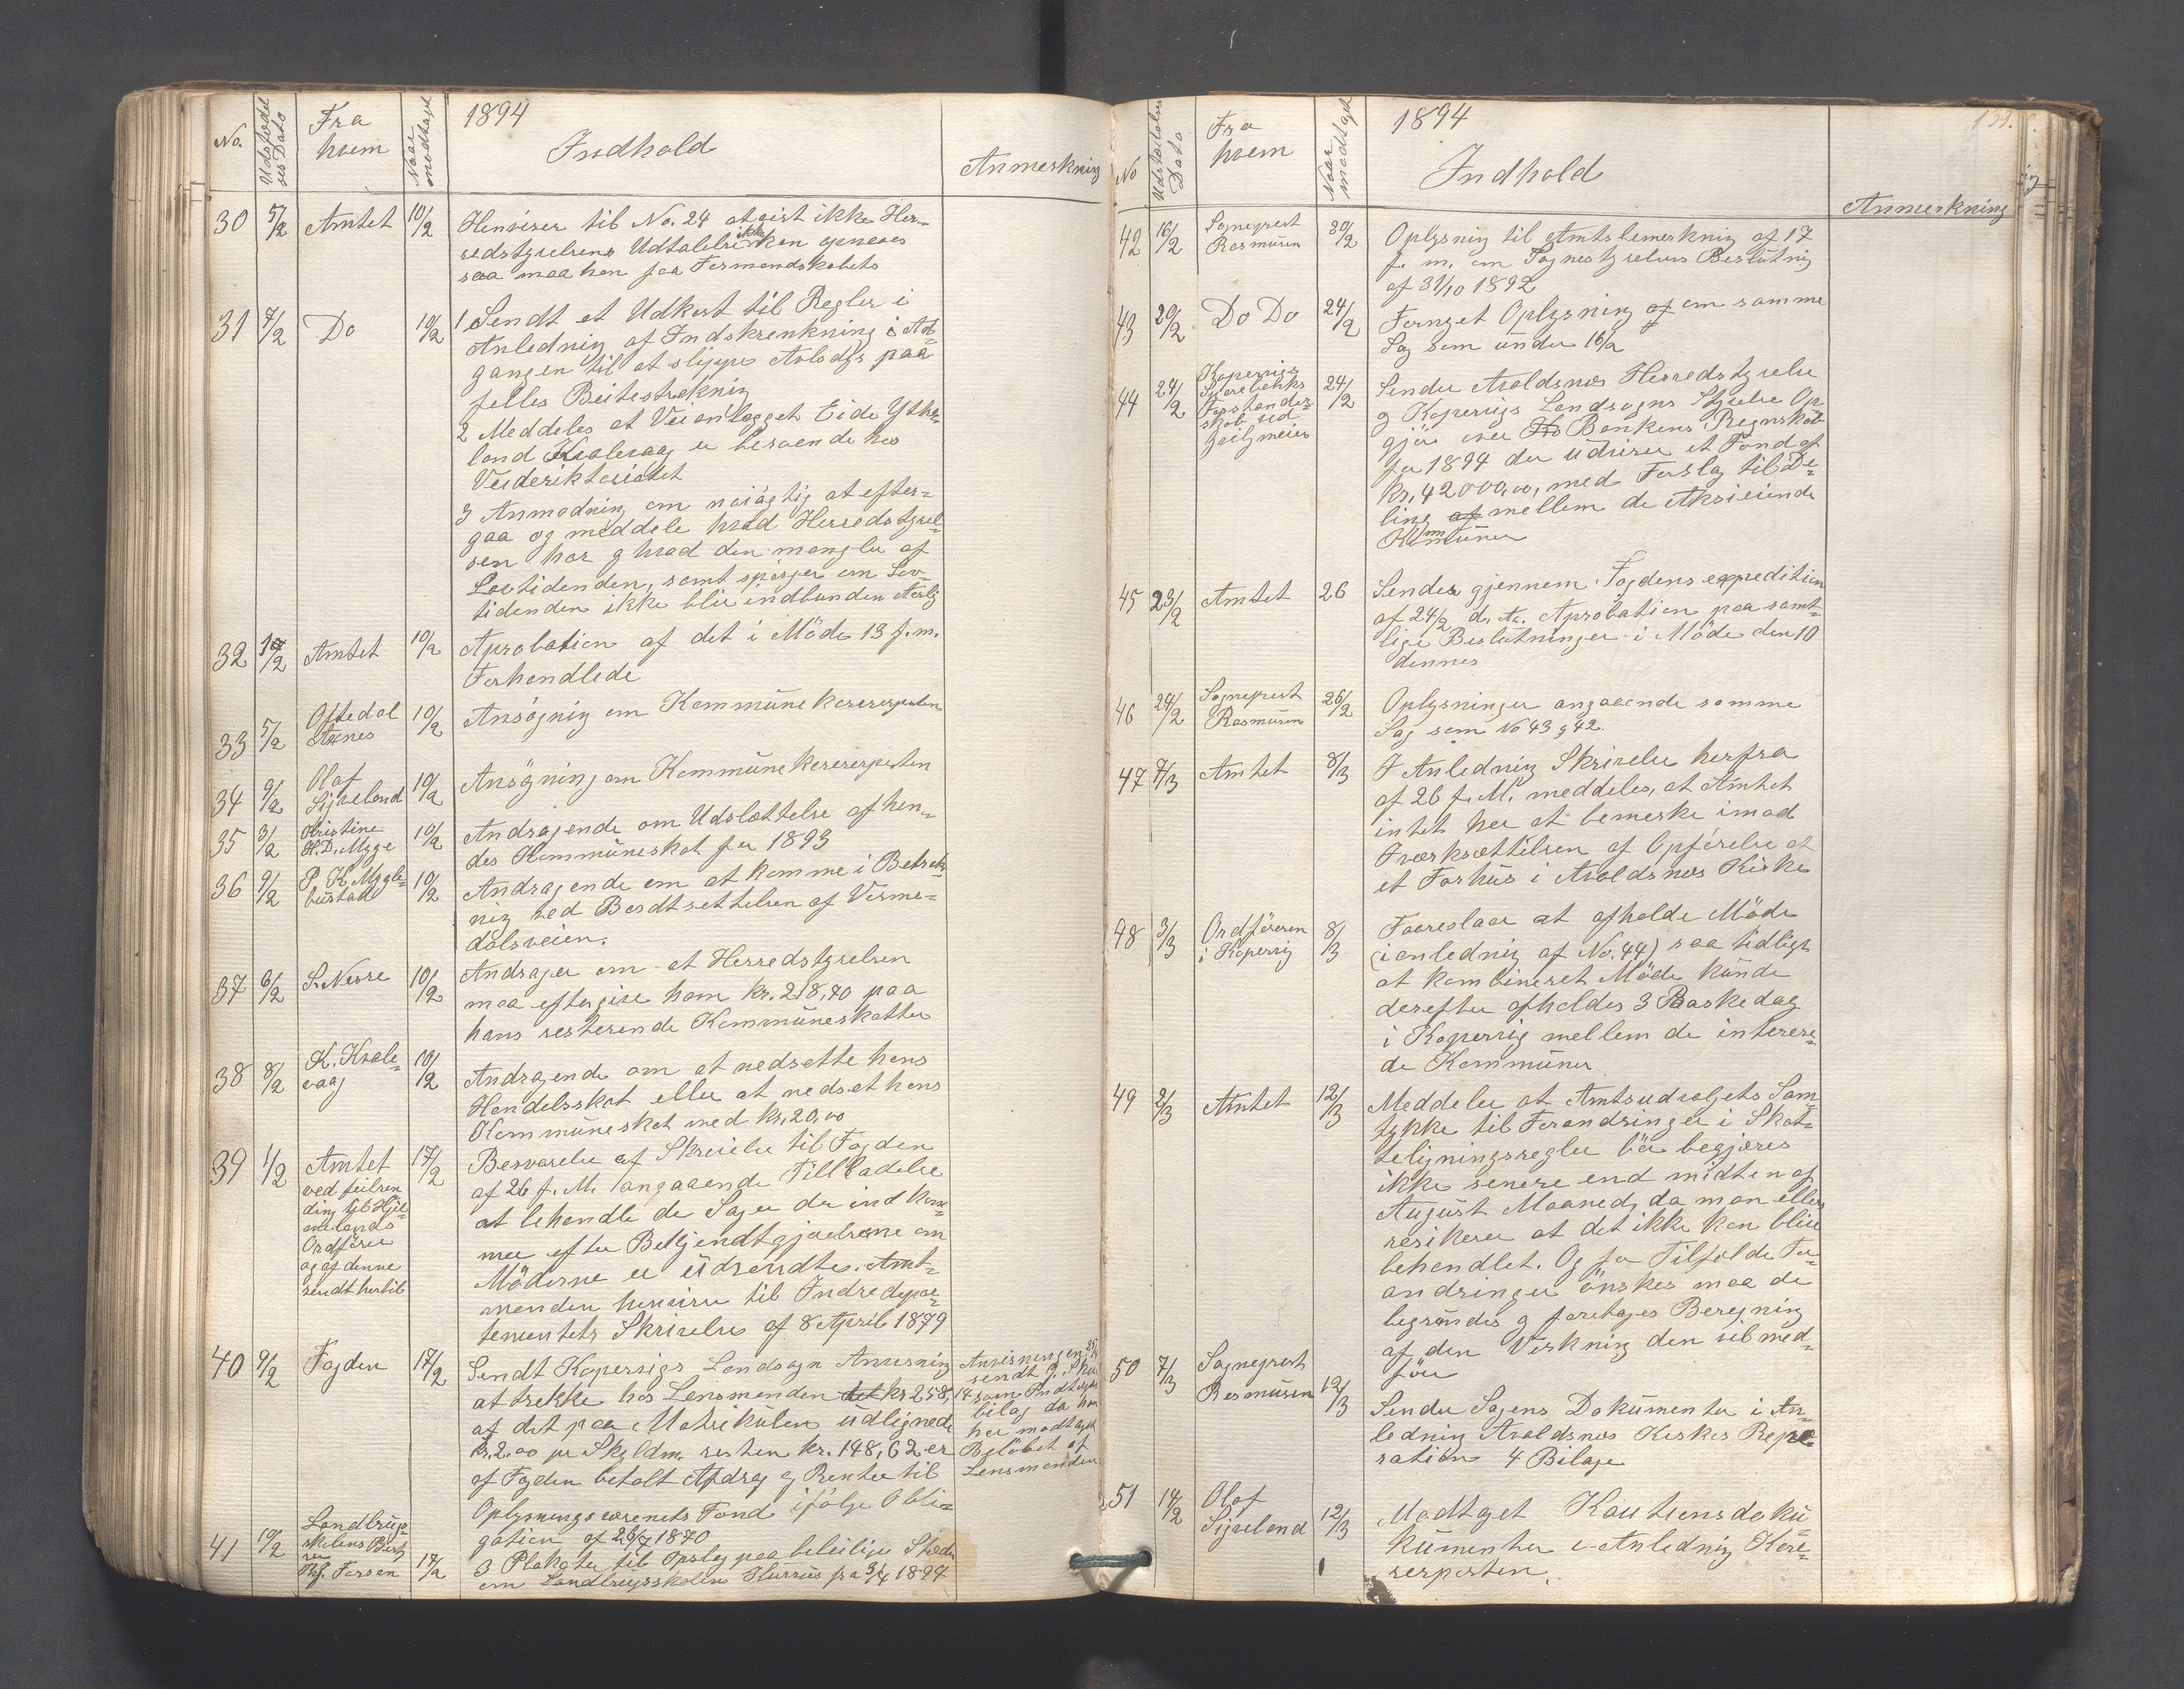 No.
Udstedel
ses Dato
Fra
hvem
Naar
modtaget
1894
Indhold
Anmerkning
30 5/2 Amtet 10/2 Henviser til No. 24 at sist ikke Her-
redstyrelsens Udtalelse ikke kan
saa maa han faa Formandskabets
31 7/2 Do 10/2 1 Sendt et Udkast til Regler i
Anledning af Indskrenkning i Ad-
gangen til at slippe paa
felles Beitestrekning
2 Meddeles at Veianlegget Eide Ythe-
land Kvalevaag er beroende hos
Veideriktoriatet
3 Anmodning om nöiagtig at efter=
gaa og meddele hvad Herredstyrel-
sen har g hvad den mangler af
Lovtidenden, samt spörger om Lov-
tidenden ikke blir indbunden Aarlig
32 10/2 Amtet 10/2 Aprobation af det i Möde 13 f. m.
Forhandlede
33 5/2 Oftedal
10/2 Ansögning om Kommünekasererposten
34 9/2 Olaf
Sijveland 10/2 Ansögning om Kommünekasererposten
35 3/2 Kristine
H. D. Myge 10/2 Andragende om Udslættelse af hen-
des Kommüneskat for 1893
36 9/2 P K Mygle-
büstad 10/2 Andragende om at komme i Betrakt-
ning ved Bordtsettelsen af Visne=
dalsveien.
37 6/2 S. Nesse 10/2 Andrager om at Herredstyrelsen
maa eftergive ham kr. 218,70 paa
hans resterende Kommüneskatter
38 8/2 K. Kvale-
vaag 10/2 Andragende om at nedsette hans
Handelsskat eller at nedsat hans
Kommüneskat med kr. 20,00
39 1/2 Amtet
ved feilsen
ding til Hjel-
melands
Ordförer
og af denne
sendt hertil
17/2 Besvarelse af Skrivelse til Fogden
af 26 f. M. angaaende Tilladelse
at behandle de Sager der ind kom-
mer efter Bekjendtgjörelserne om
Möderne er üdsendte. Amt-
manden henviser til Indredepar-
tementets Skrivelse af 8 April 1879
40 9/2 Fogden 17/2 Sendt Kopervigs Landsogn Anvisning
at trekke hos Lensmanden kr 258,14
af det paa Matrikülen üdlignede
kr. 2.00 pr Skyldm. resten kr. 148,62 er
af Fogden betalt Afdrag g Renter til
Oplysningsvæsenets Fond ifölge Obli=
gation af 26/7 1870
Anvisningen
sendt
som Indtægts
bilag da han
har modtaget
Belöbet af
Lensmanden
41 10/2 Landbrugs-
skolens Besty
rer
Larsen 17/2 3 Plakater til Opslag paa beleilige Steder
om Landbrugsskolens Kursus fra 3/4 1894
No
Udstædelses
Dato
Fra
hvem
Naar
modtaget
1894
Indhold
Anmerkning
42 16/2 Sogneprest
Rasmüsen 20/2 Oplysning til Amtsbemerkning af 17
f. m. om Sognestyrelsens Beslütning
af 31/10 1892
43 20/2 Do Do 24/2 Fornyet Oplysning af om samme
Sag som ünder 16/2
44 24/2 Kopervigs
Sparebanks
Forstander-
skab ved
24/2 Sender Avaldsnes Herredstyrelse
g Kopervigs Landsogns Styrelse Op
gjör over Bankens Regnskab
for 1894 der üdviser et Fond af
kr. 42000,00, med Forslag til De-
ling af mellem de Aksieiende
Kommüner
45 23/2 Amtet 26 Sender gjennem Fogdens expedition
af 24/2 d. A. Aprobation paa samt-
lige Beslütninger i Möde den 10
dennes
46 24/2 Sogneprest
Rasmüsen 26/2 Oplysninger angaaende samme
Sag som No 43 g 42.
47 7/3 Amtet 8/3 I Anledning Skrivelse herfra
af 26 f. M. meddeles, at Amtet
intet har at bemerke imod
Iværksættelsen af Opförelse af
et Forhüs i Avaldsnes Kirke
48 3/3 Ordföreren
i Kopervig 8/3 Foareslaar at afholde Möde
(i anledning af No. 44) saa tidligt
at kombineret Möde künde
derefter afholdes 3 Paaskedag
i Kopervig mellem de interere-
de Kommüner
49 2/3 Amtet 12/3 Meddeler at Amtsudvalgets Sam-
tykke til Forandringer i Skat-
teligningsregler bör begjæres
ikke senere end midten af
August Maaned, da man ellers
resikerer at det ikke kan blive
behandlet. Og for Tilfelde For-
andringer önskes maa de
begründes g foretages Beregning
af den Virkning den vil med-
före
50 7/3 Sogneprest
Rasmüsen 12/3 Sender Sagens Dokümenter i An-
ledning Avaldsnes Kirkes Repa-
ration 4 Bilage
51 14/2 Olaf
Sijveland 12/3 Modtaget Kautionsdokü
kümenter i Anledning Kase-
rerposten.